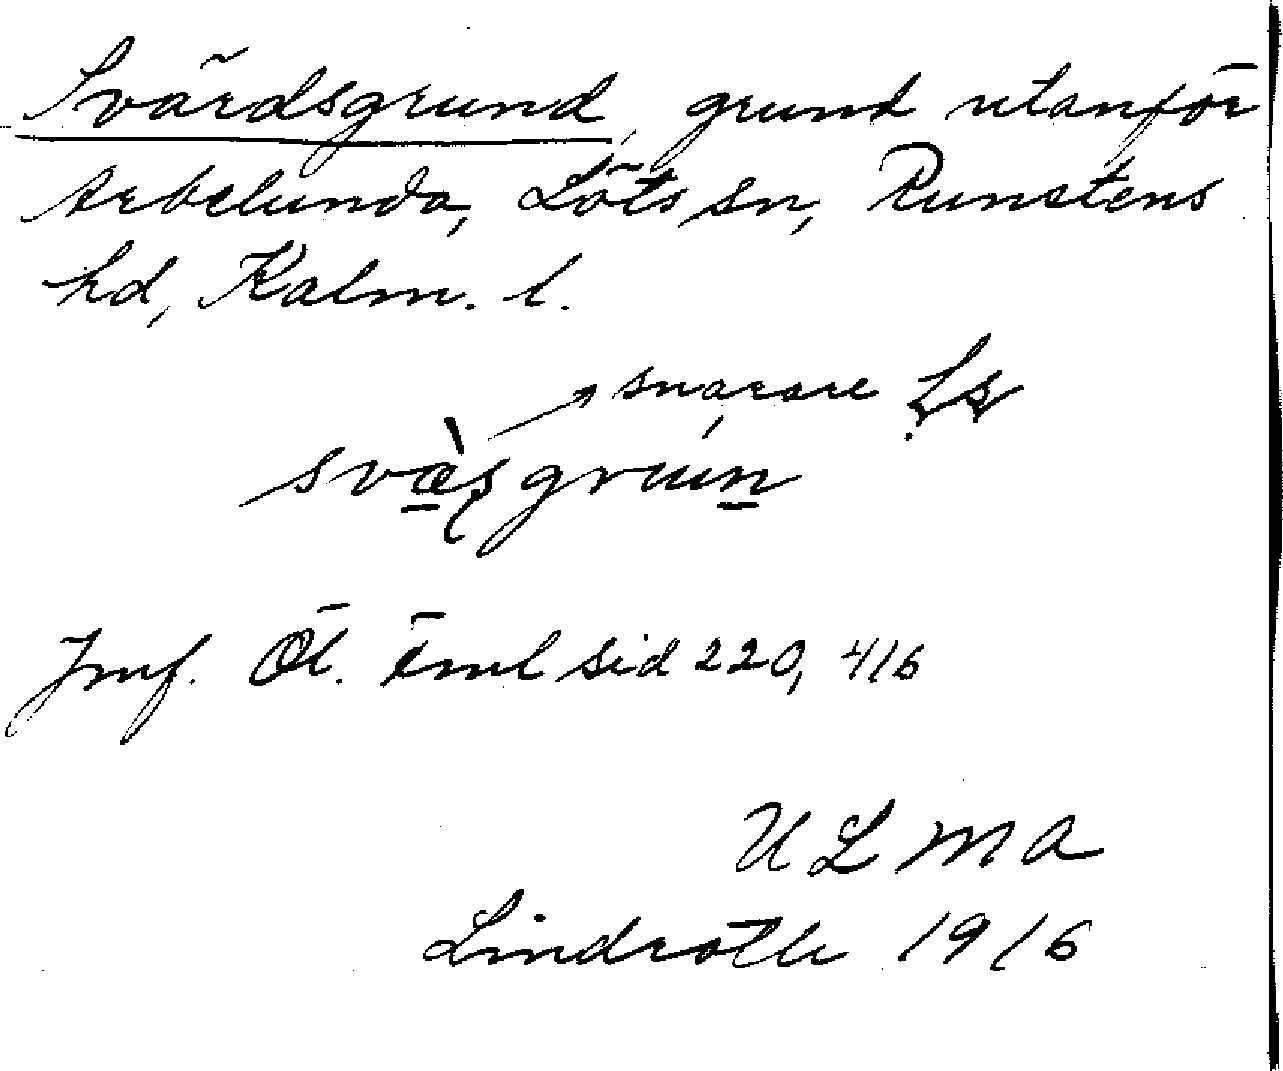 Svärdsgrund, grund utanför
Arbelunda, Löts sn, Runstens
hd, Kalm. l.
snarare
sväsgrun
Jmf. Öl. ênml sid 220, 416
ULMA
Lindroth 1916